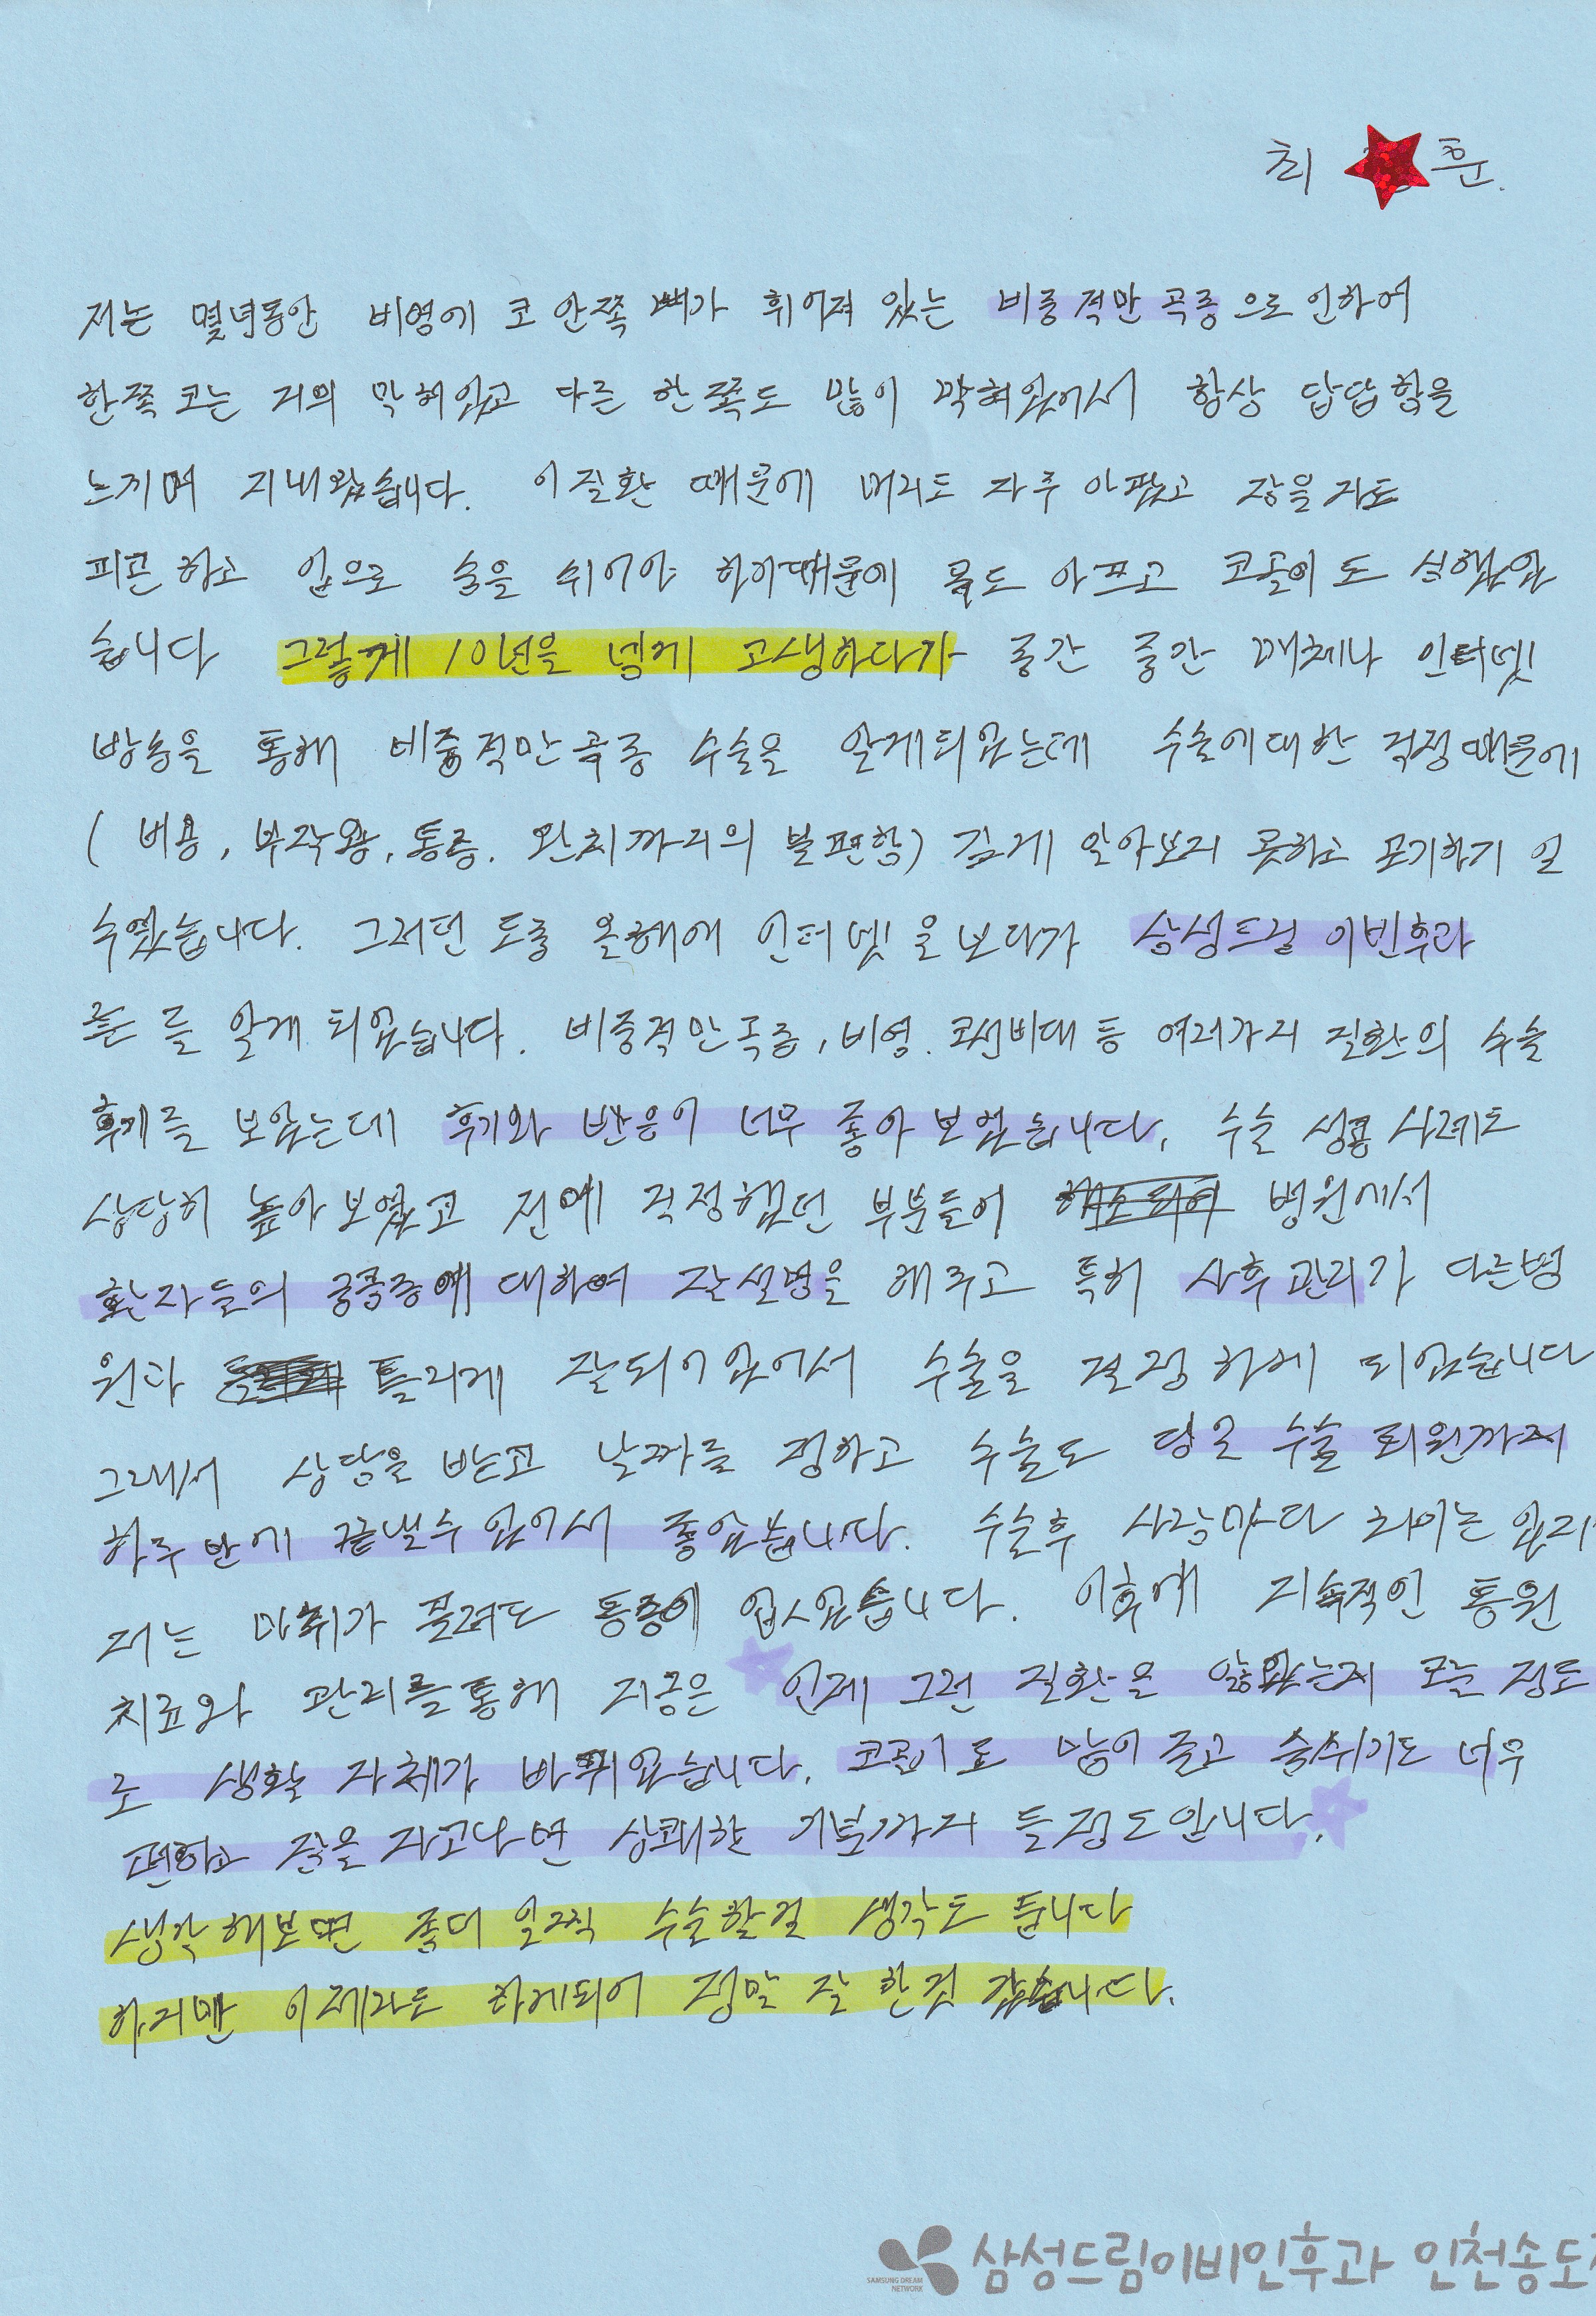 최 훈.
저는 몇년동안 비염에 코 안쪽 뼈가 휘어져 있는 비중적만 곡증으로 인하여
한쪽 코는 거의 막혀있고 다른 한쪽도 많이 막혀있어서 항상 답답함을
느끼며 지내왔습니다. 이질환 때문에 머리도 자주 아팠고 잠을자도
피곤하고 입으로 숨을 쉬어야 하기때문에 목도 아프고 코골이도 심했었
습니다 그렇게 10년을 넘게 고생하다가 중간 중간 매체나 인터넷
방송을 통해 비중적만곡증 수술을 알게되었는데 수술에대한 걱정때문에
( 비용, 부작용, 통증. 완치까지의 불편함) 깊게 알아보지 못하고 포기하기 일
수였습니다. 그러던 도중 올해에 인터넷을보다가 삼성드림 이빈후과
를 알게 되었습니다. 비중적만곡증, 비염. 코선비대 등 여러가지 질환의 수술
후기를 보았는데 후기와 반응이 너무 좋아 보였습니다. 수술 성공 사례도
상당히 높아 보였고 전에 걱정했던 부분들이 병원에서
환자들의 궁금증에 대하여 잘설명을 해주고 특히 사후관리가 다른병
원과 틀리게 잘되어있어서 수술을 결정하게 되었습니다
그래서 상담을 받고 날짜를 정하고 수술도 당일 수술 퇴원까지
하루만에 끝낼수있어서 좋았습니다. 수술후 사람마다 차이는 있지
저는 마취가 풀려도 통증이 없었습니다. 이후에 지속적인 통원
치료와 관리를통해 지금은 언제 그런 질환을 앓았는지 모를 정도
로 생활 자체가 바뀌었습니다. 코골이도 많이 줄고 숨쉬기도 너무
편하고 잠을 자고나면 상쾌한 기분까지 들정도입니다.
생각해보면 좀더 일찍 수술할걸 생각도 듭니다
하지만 이제라도 하게되어 정말 잘 한것 같습니다.
SAMSUNG DREAM
NETWORK
삼성드림이비인후과 인천송도